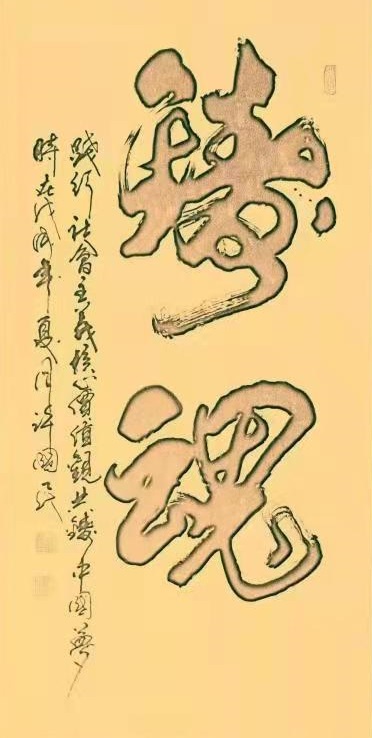 鑄魂
踐行社會主義核心價值觀共鑄中國夢
時在戊戌年夏月許國